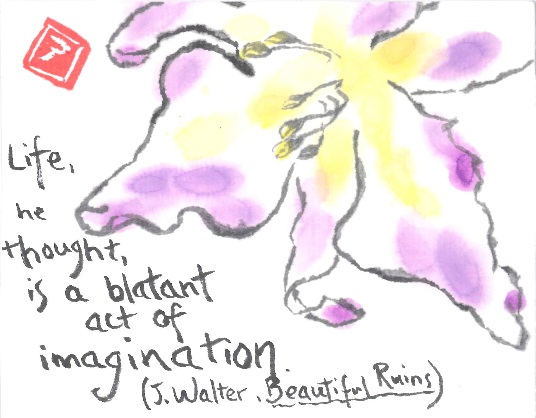 ア
Life,
he
thought,
is a blatant
act of
imagination.
(J. Walter, Beautiful Ruins)